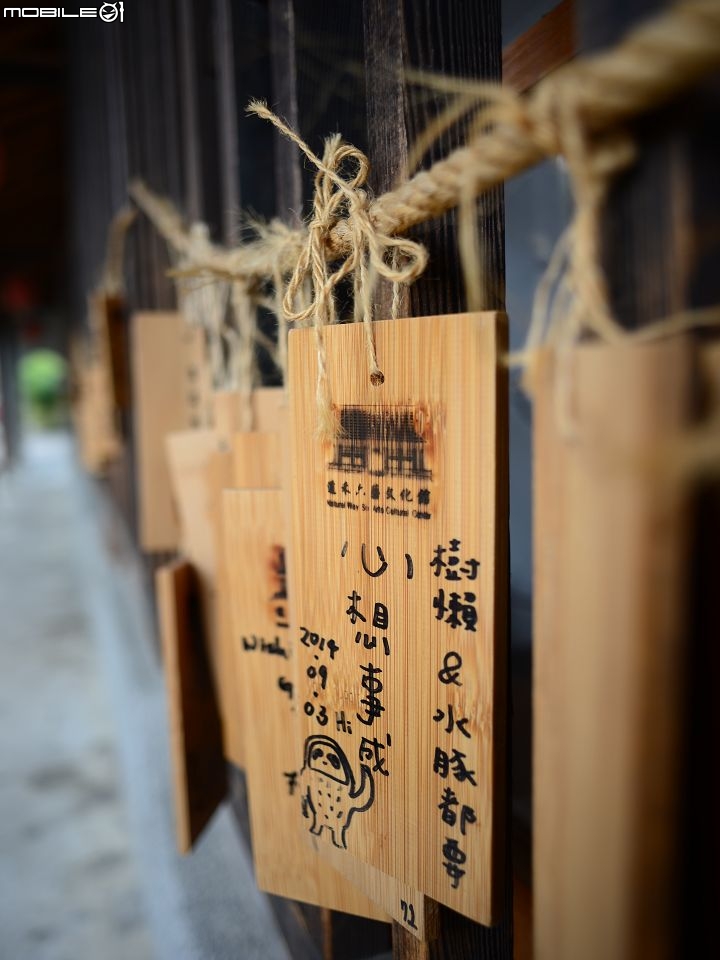 MOBILE01
道禾六藝文化館
Natural Way Six Arts Cultural Center
樹懶&水豚都要
心想事成
2014.09.03
Hi
72